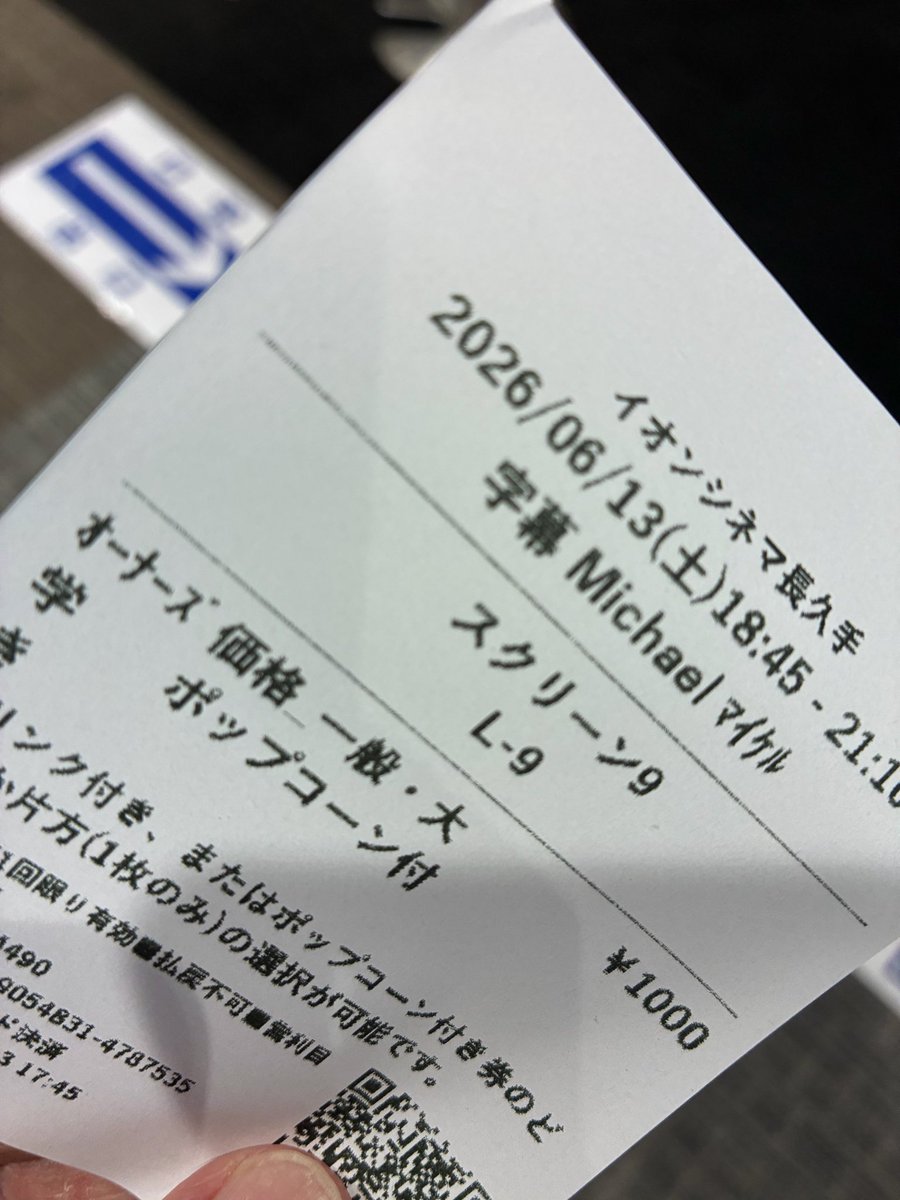 イオンシネマ長久手
2026/06/13(土)18:45 - 21:10
字幕 Michael マイケル
スクリーン9
L-9
オーナーズ 価格_一般・大
学 ポップコーン付
き
¥1000
リンク付き、またはポップコーン付き券のど
か片方(1枚のみ)の選択が可能です。
1回限り有効■払戻不可■営利目
A490
9054831-4787535
ド決済
3 17:45